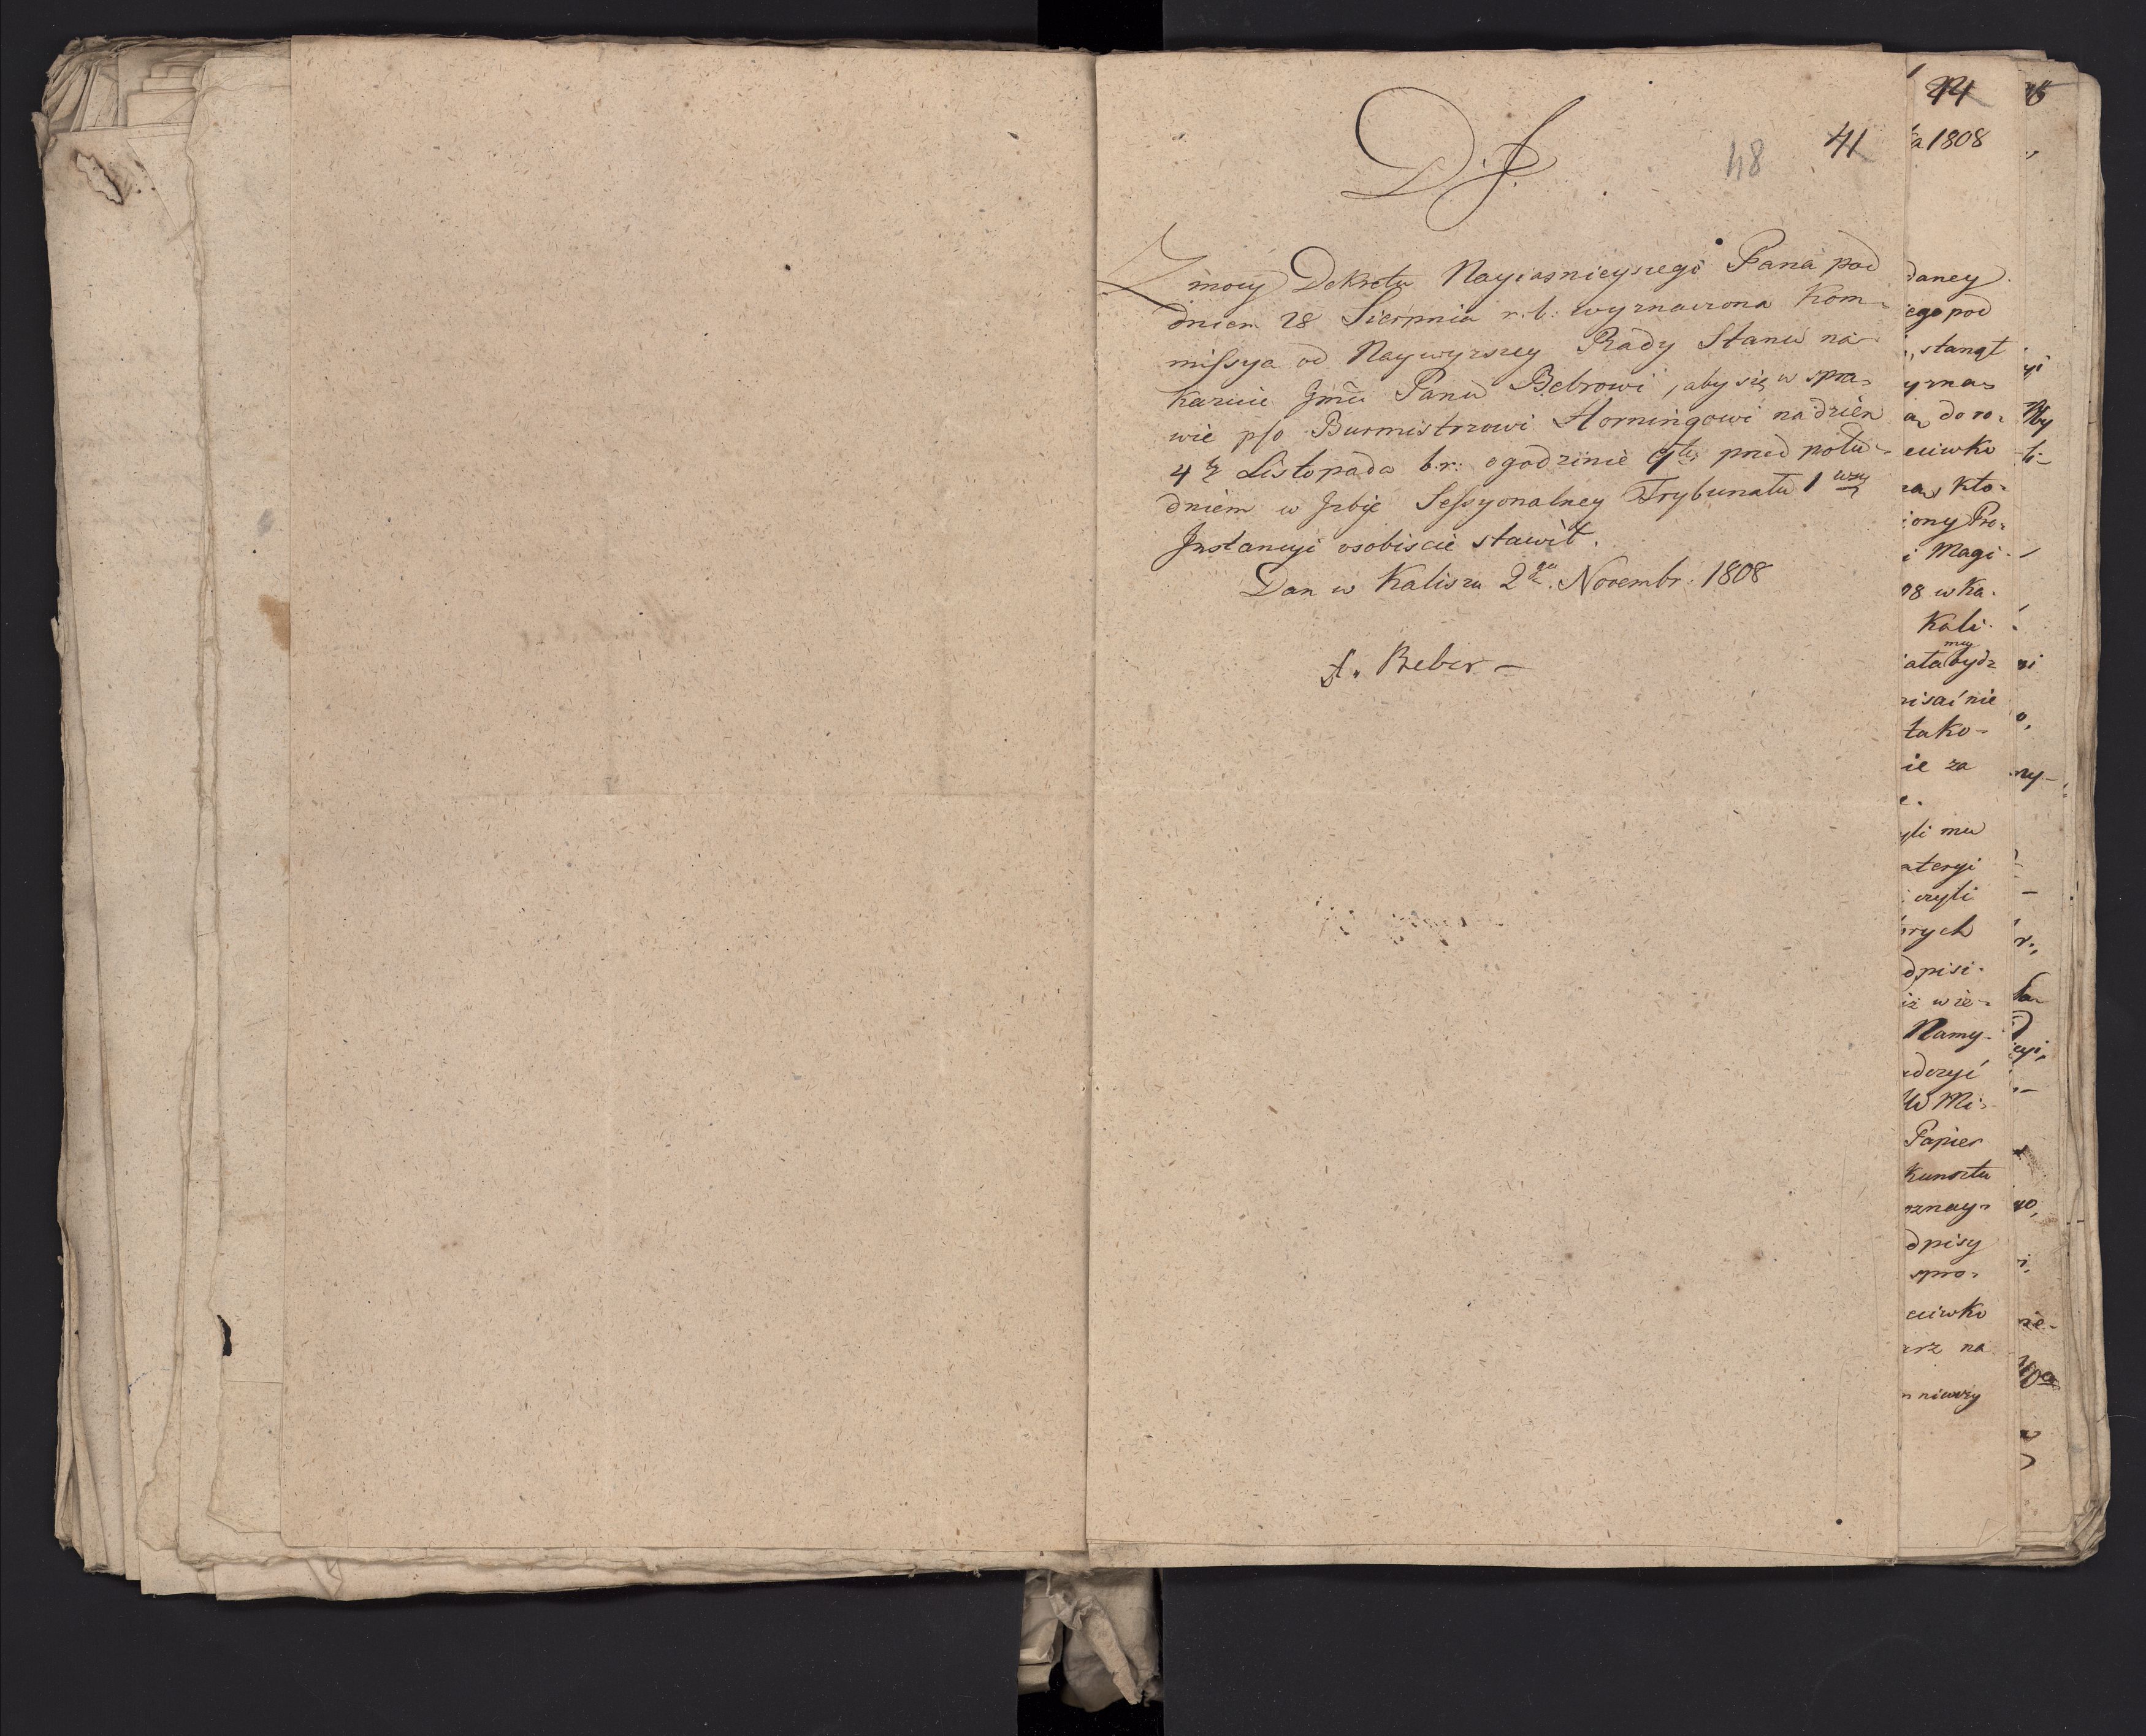 41
48
D. J.
Z mocy Dekretu Nayiasnieyszego Pana pod
dniem 28 Sierpnia r. b: wyznaczona Kom-
missya od Naywyzszey Rady Stanu na-
kazuie Jmci Panu Bebrowi, aby się w spra-
wie p/o Burmistrzowi Horningowi na dzien
4ty Listopada b.r: o godzinie 9tey przed połu-
dniem w Jzbie Sessyonalney Trybunału 1wszy
Jnstancyi osobiscie stawił.
Dan w Kaliszu 2go Novembr: 1808
A. Beber
44
ka 1808
daney
iego pod
, stanął
yzna-
do ro-
eciwko
kto-
iony Pro-
i Magi-
08 w Ka-
Kali-
my
iała bydz
pisać nie
tako-
ie za
e.
yli mu
ateryi
czyli
órych
dpisi-
iż wie-
Namy-
adczyć
W Mi-
Papier
Kunsztu
oznay-
dpisy
spro-
eciwko
arz na